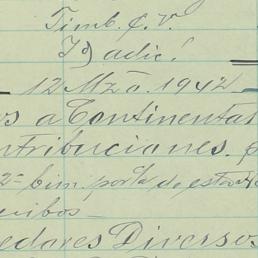 Timb. C. V.
Id adic!
12 Mzo. 1942
os a Continentas
ntribuciones.
2= bim. porta de esta
cibos
edores Diversos